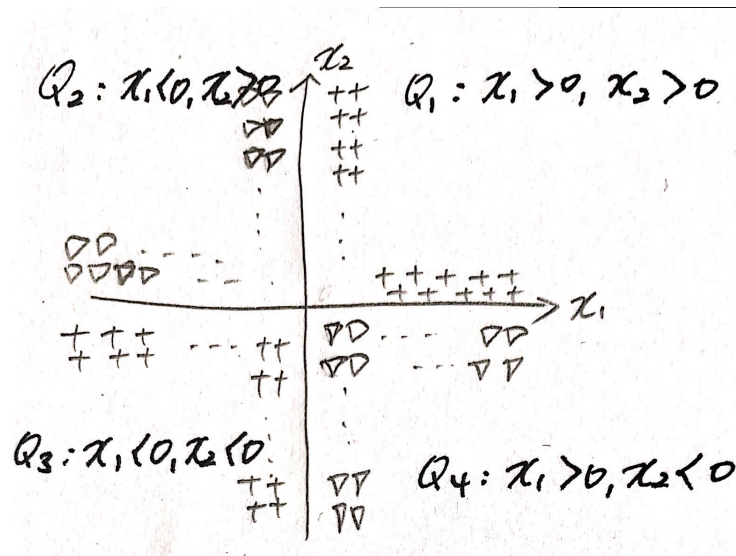 x₂
Q₂: x₁<0, x₂>0
Q₁: x₁>0, x₂>0
x₁
Q₃: x₁<0, x₂<0
Q₄: x₁>0, x₂<0